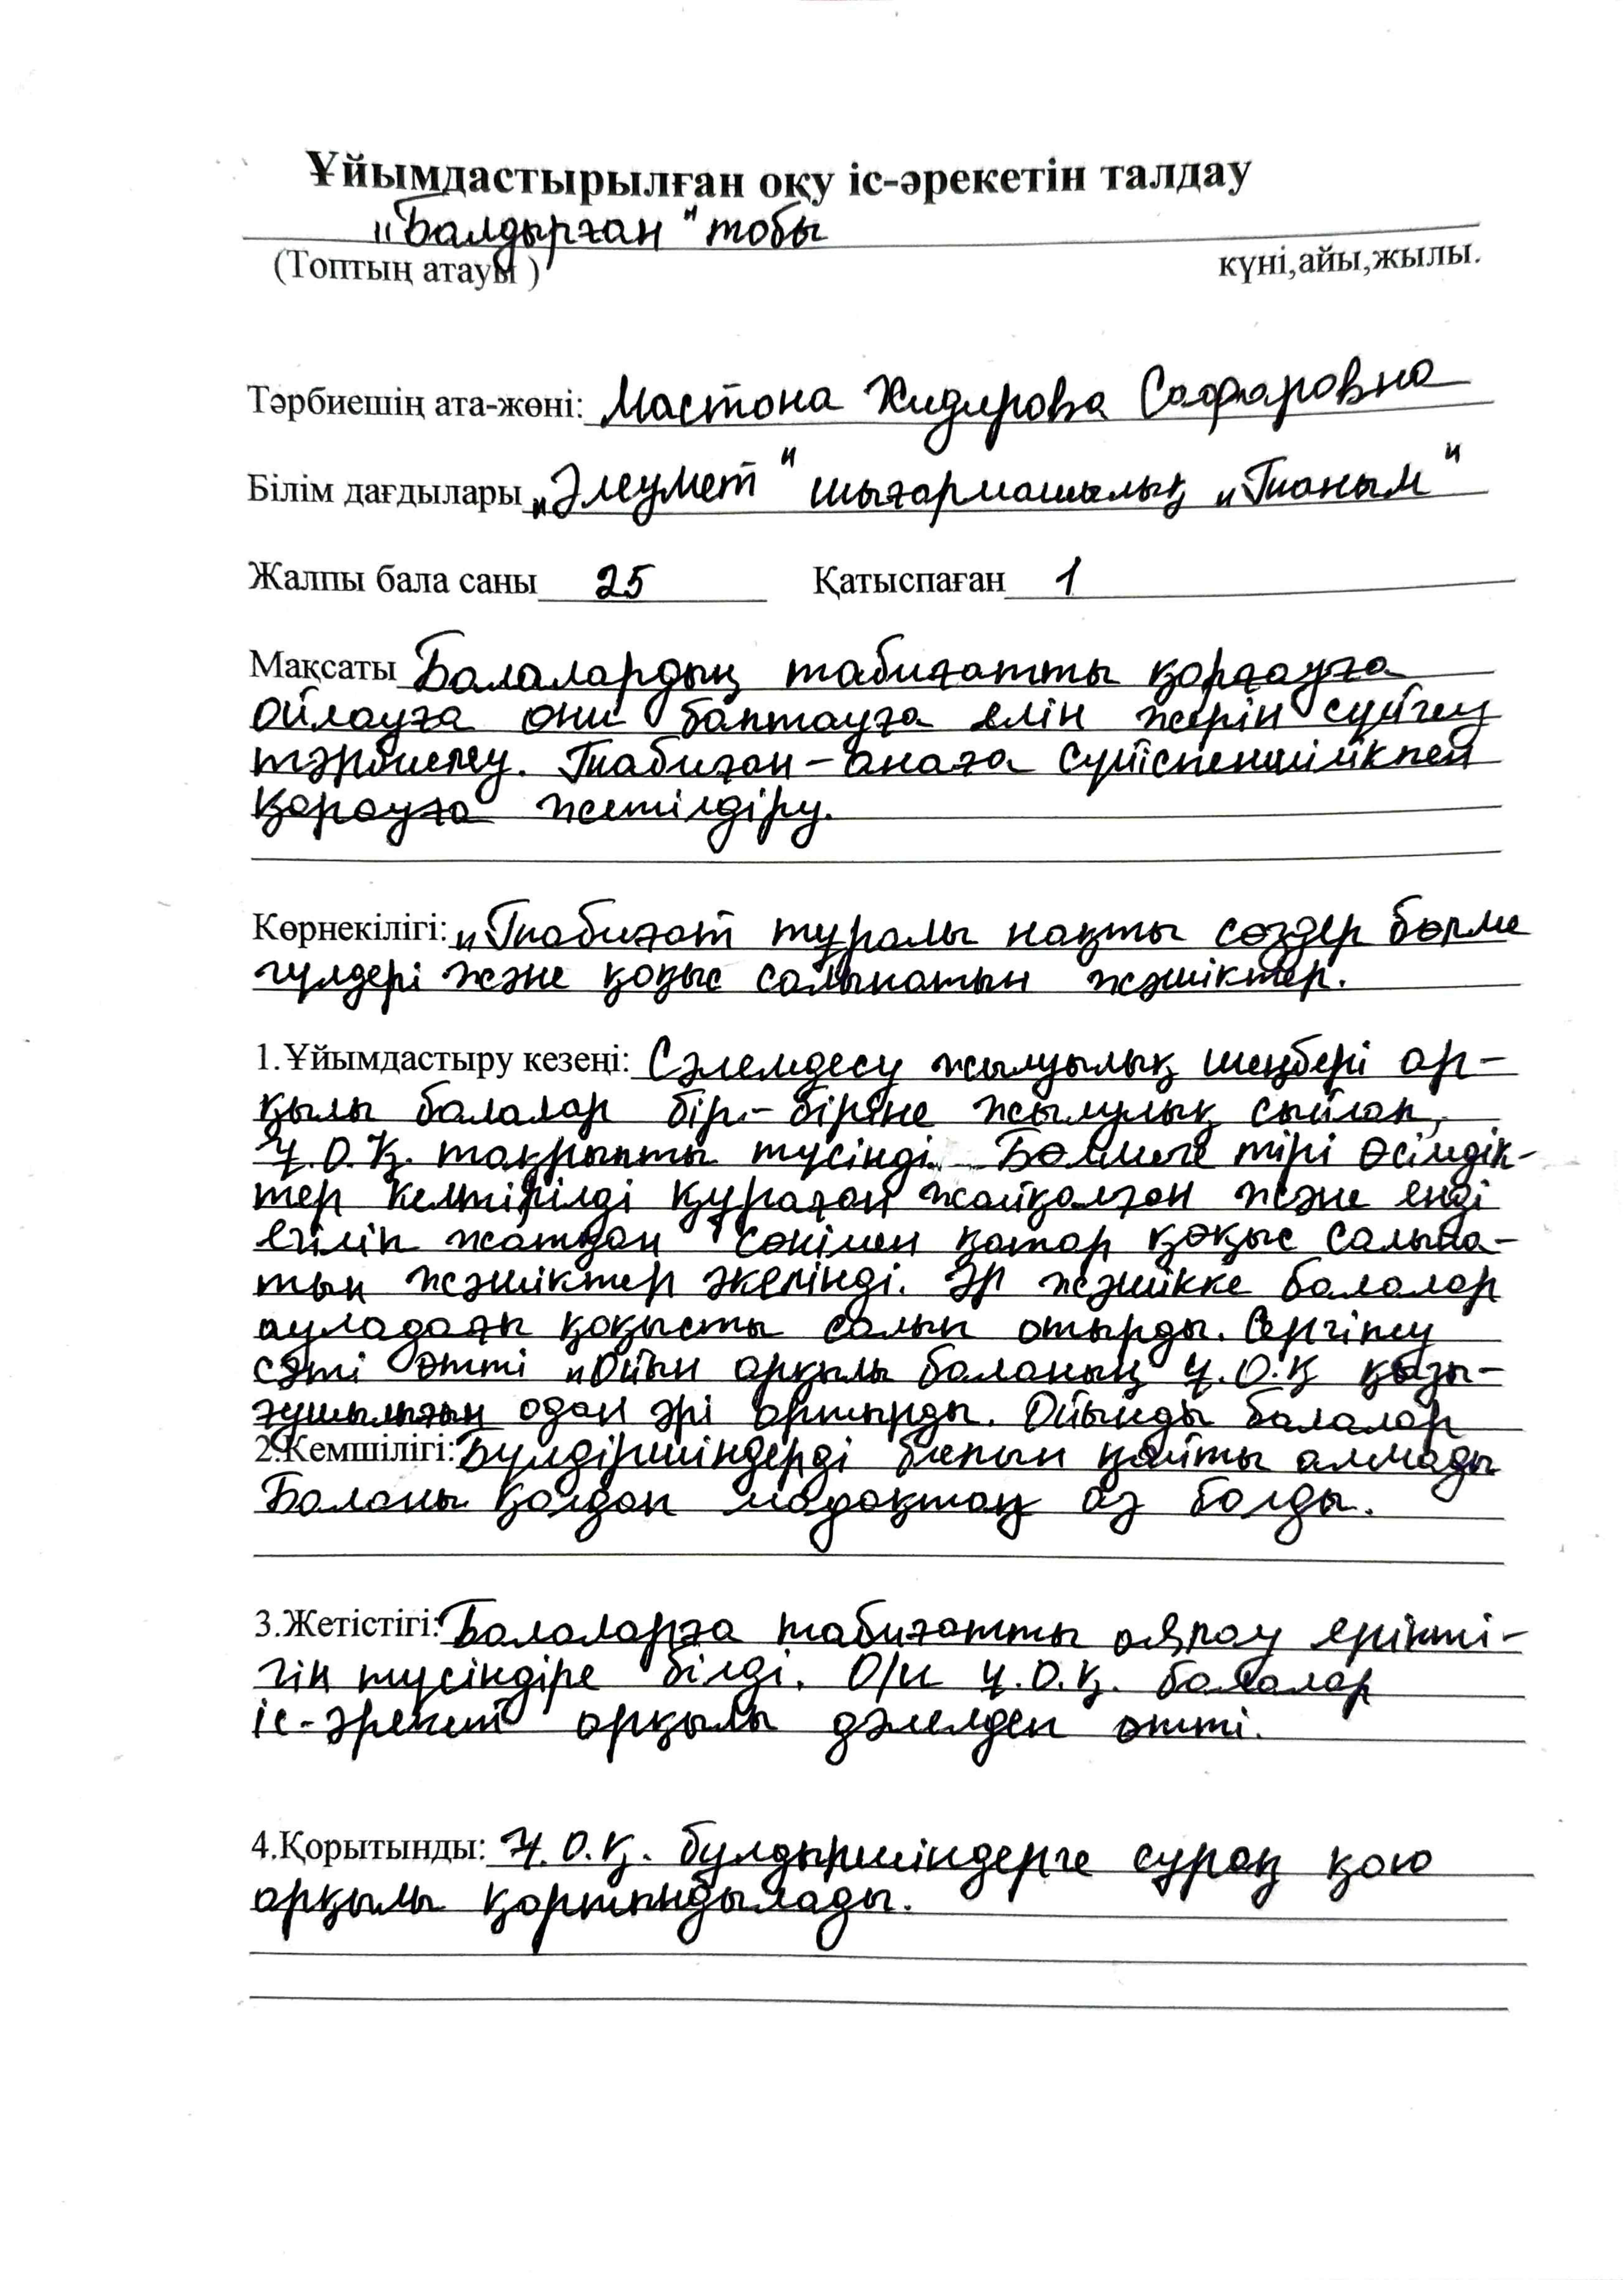 Ұйымдастырылған оқу іс-әрекетін талдау
"Балдырған" тобы
(Топтың атауы ) күні,айы,жылы.
Тәрбиешің ата-жөні: Мастона Хидирова Сафаровна
Білім дағдылары „Әлеумет" шығармашылық „Таным"
Жалпы бала саны 25 Қатыспаған 1
Мақсаты Балалардың табиғатты қорғауға
ойлауға они баптауға елін жерін сүйгеу
тәрбиелеу. Табиған-анаға сүйіспеншілікпен
қарауға жетілдіру.
Көрнекілігі: „Табиғат туралы нақты сөздер бөлме
гүлдері және қоқыс салынатын жәшіктер.
1.Ұйымдастыру кезеңі: Сәлемдесу жылуылық шеңбері ар-
қылы балалар бір-біріне жылулық сыйлап,
Ұ.О.Қ. тақрыпты түсінді. Бөлмеге тірі өсімдік-
тер келтірілді қураған жайқалған және енді
егіліп жатқан сонымен қатар қоқыс салына-
тын жәшіктер әкелінді. Әр жәшікке балалар
ауладағы қоқысты салып отырды. Сергіпеу
сәті өтті „Ойын арқылы баланың Ұ.О.Қ қызы-
ғушылығын одан әрі артырды. Ойынды балалар
2.Кемшілігі: Бүлдіршіндерді қайты алмады
Баланы қолдап мадақтаң аз болды.
3.Жетістігі: Балаларға табиғатты аялау ерікті-
гін түсіндіре білді. О/и Ұ.О.Қ. балалар
іс-әрекет арқылы дәлелдеп өтті.
4.Қорытынды: Ұ.О.Қ. бүлдыршіндерге сұрақ қою
арқылы қортындылады.